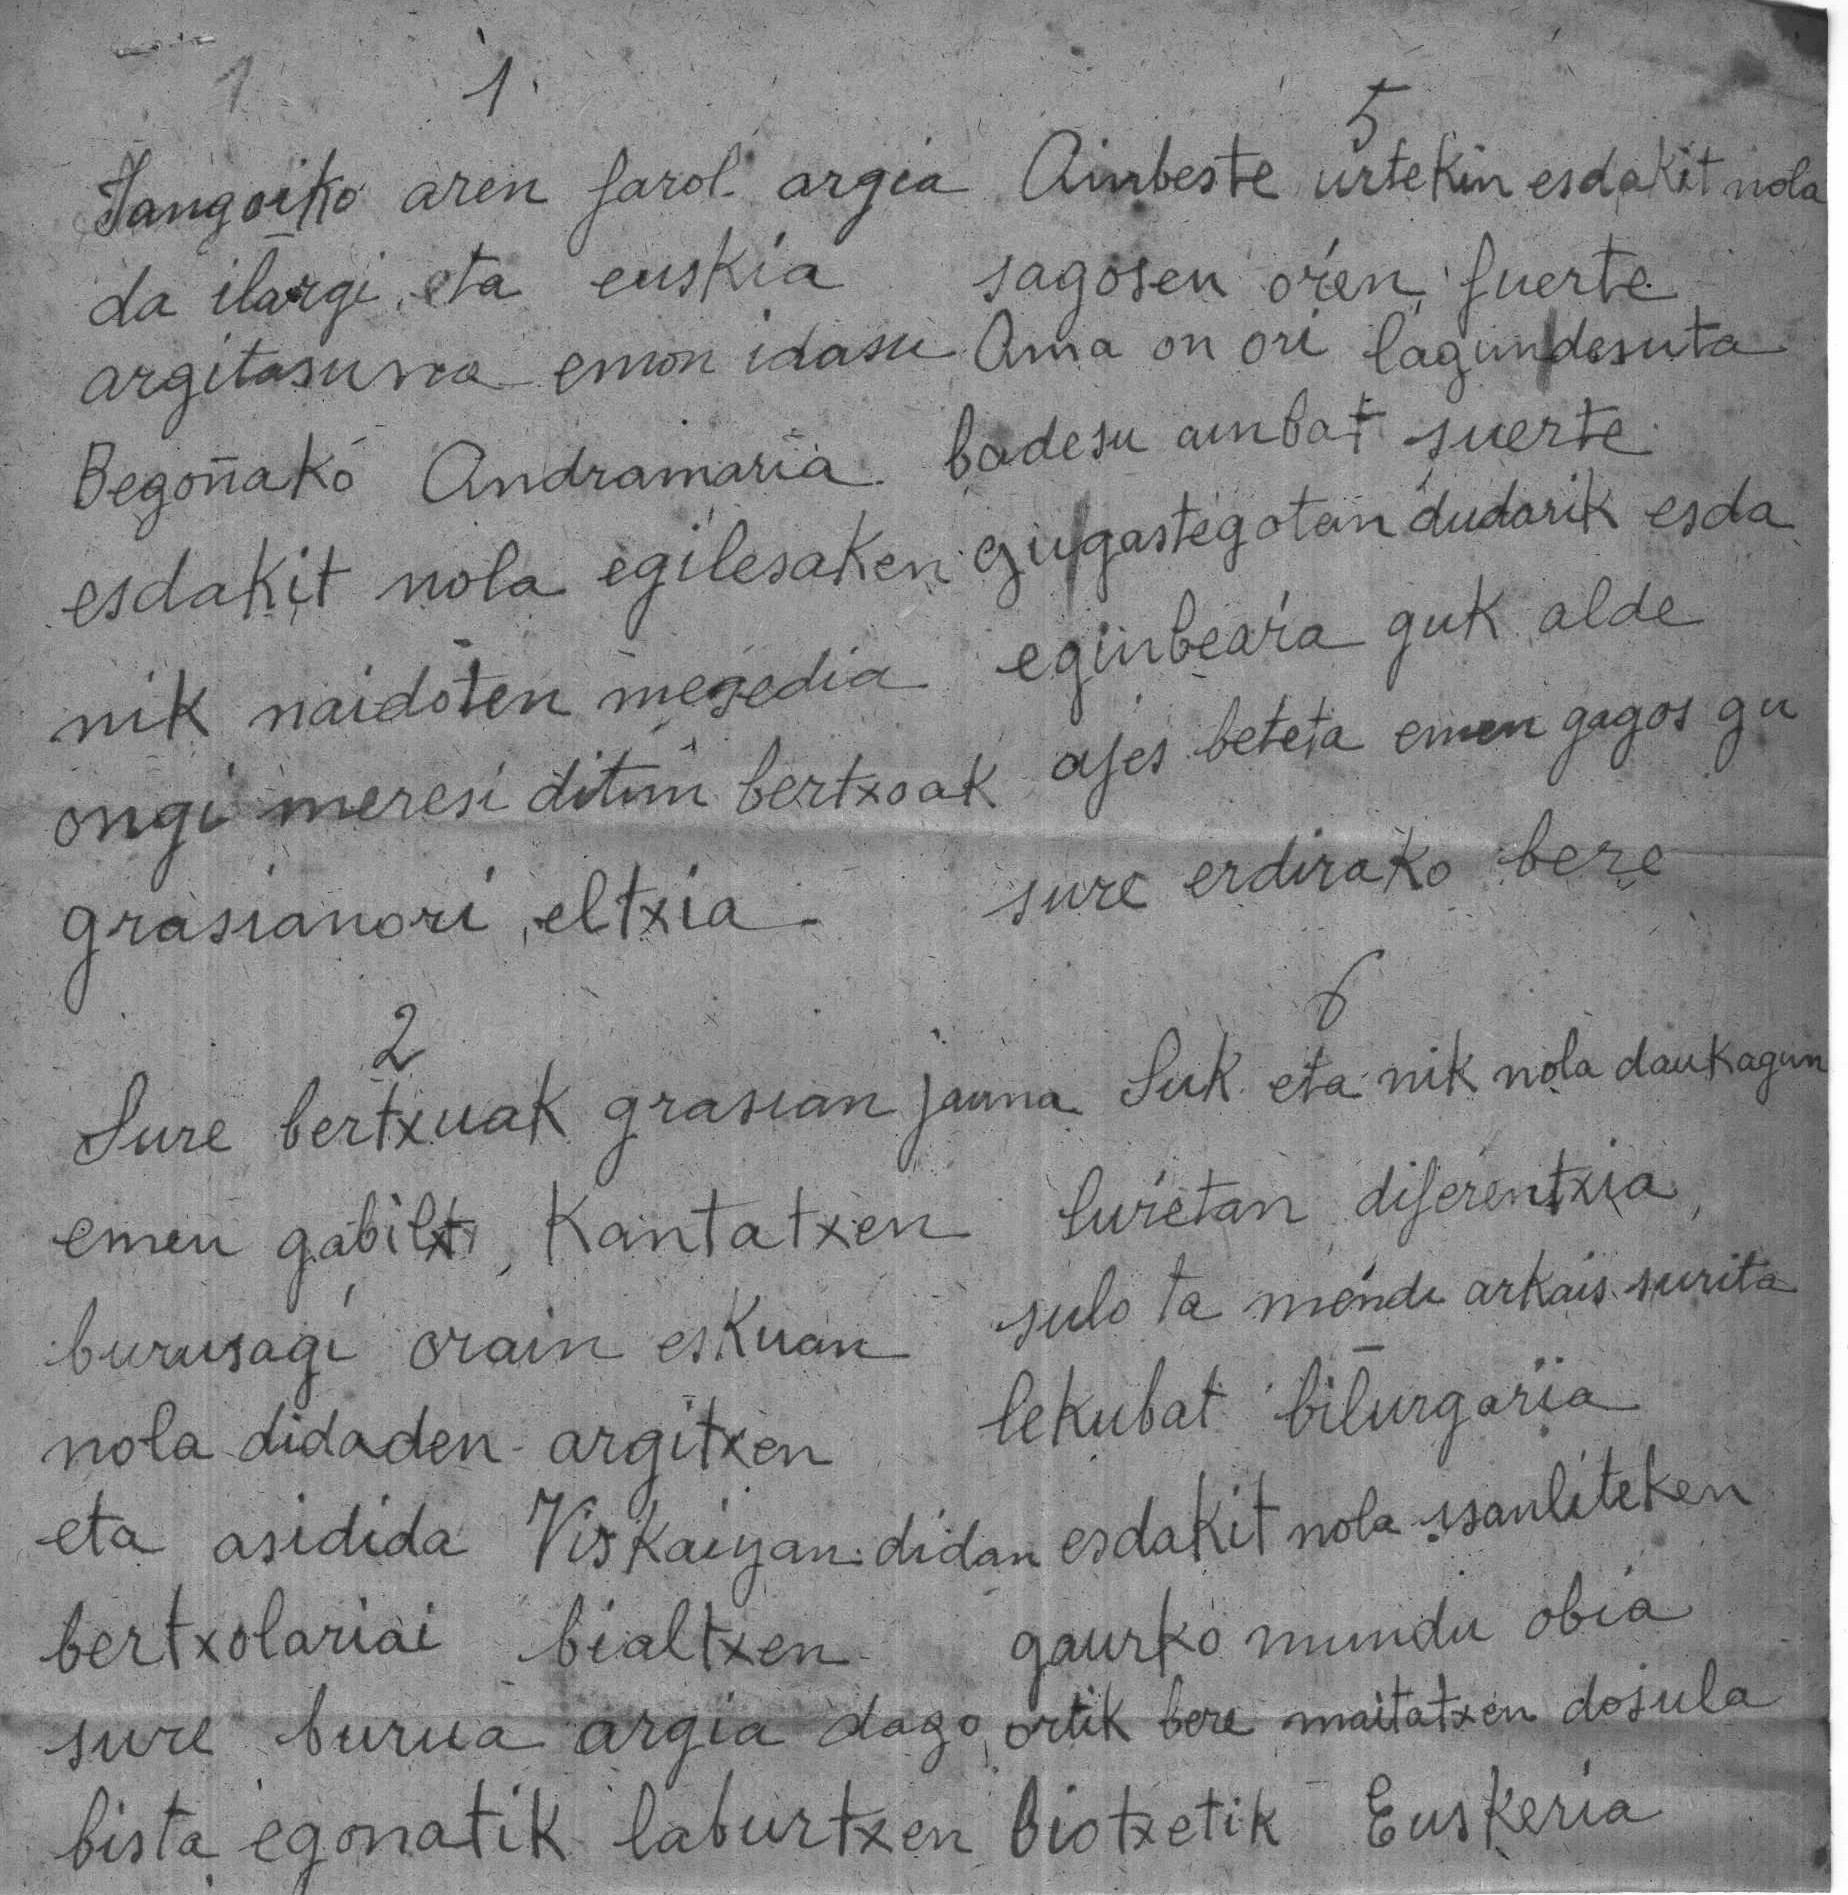 1.
Jangoiko aren farol argia
da ilargi eta euskia
argitasuna emon idasu
Begoñako Andramaria.
esdakit nola egilesaken
nik naidoten mesedia
ongi meresi ditun bertxoak
grasianori eltxia
2
Sure bertxuak grasian jauna
emen gabiltz Kantatxen
burusagi orain eskuan
nola didaden argitxen
eta asidida Viskaiyan didan
bertxolariai bialtxen
sure burua argia dago
bista egonatik laburtxen
5
Ainbeste urtekin esdakit nola
sagosen oŕen fuerte
Ama on ori lagundesuta
badesu ainbat suerte
gugastegotan dudarik esda
eginbeaŕa guk alde
ajes beteta emen gagos gu
sure erdirako bere
6
Suk eta nik nola daukagun
luŕetan diferentxia,
sulo ta mendi arkais surita
lekubat bil̄urgaŕia
esdakit nola isanliteken
gaurko mundu obia
ortik bere maitatxen dosula
Biotxetik Euskeria